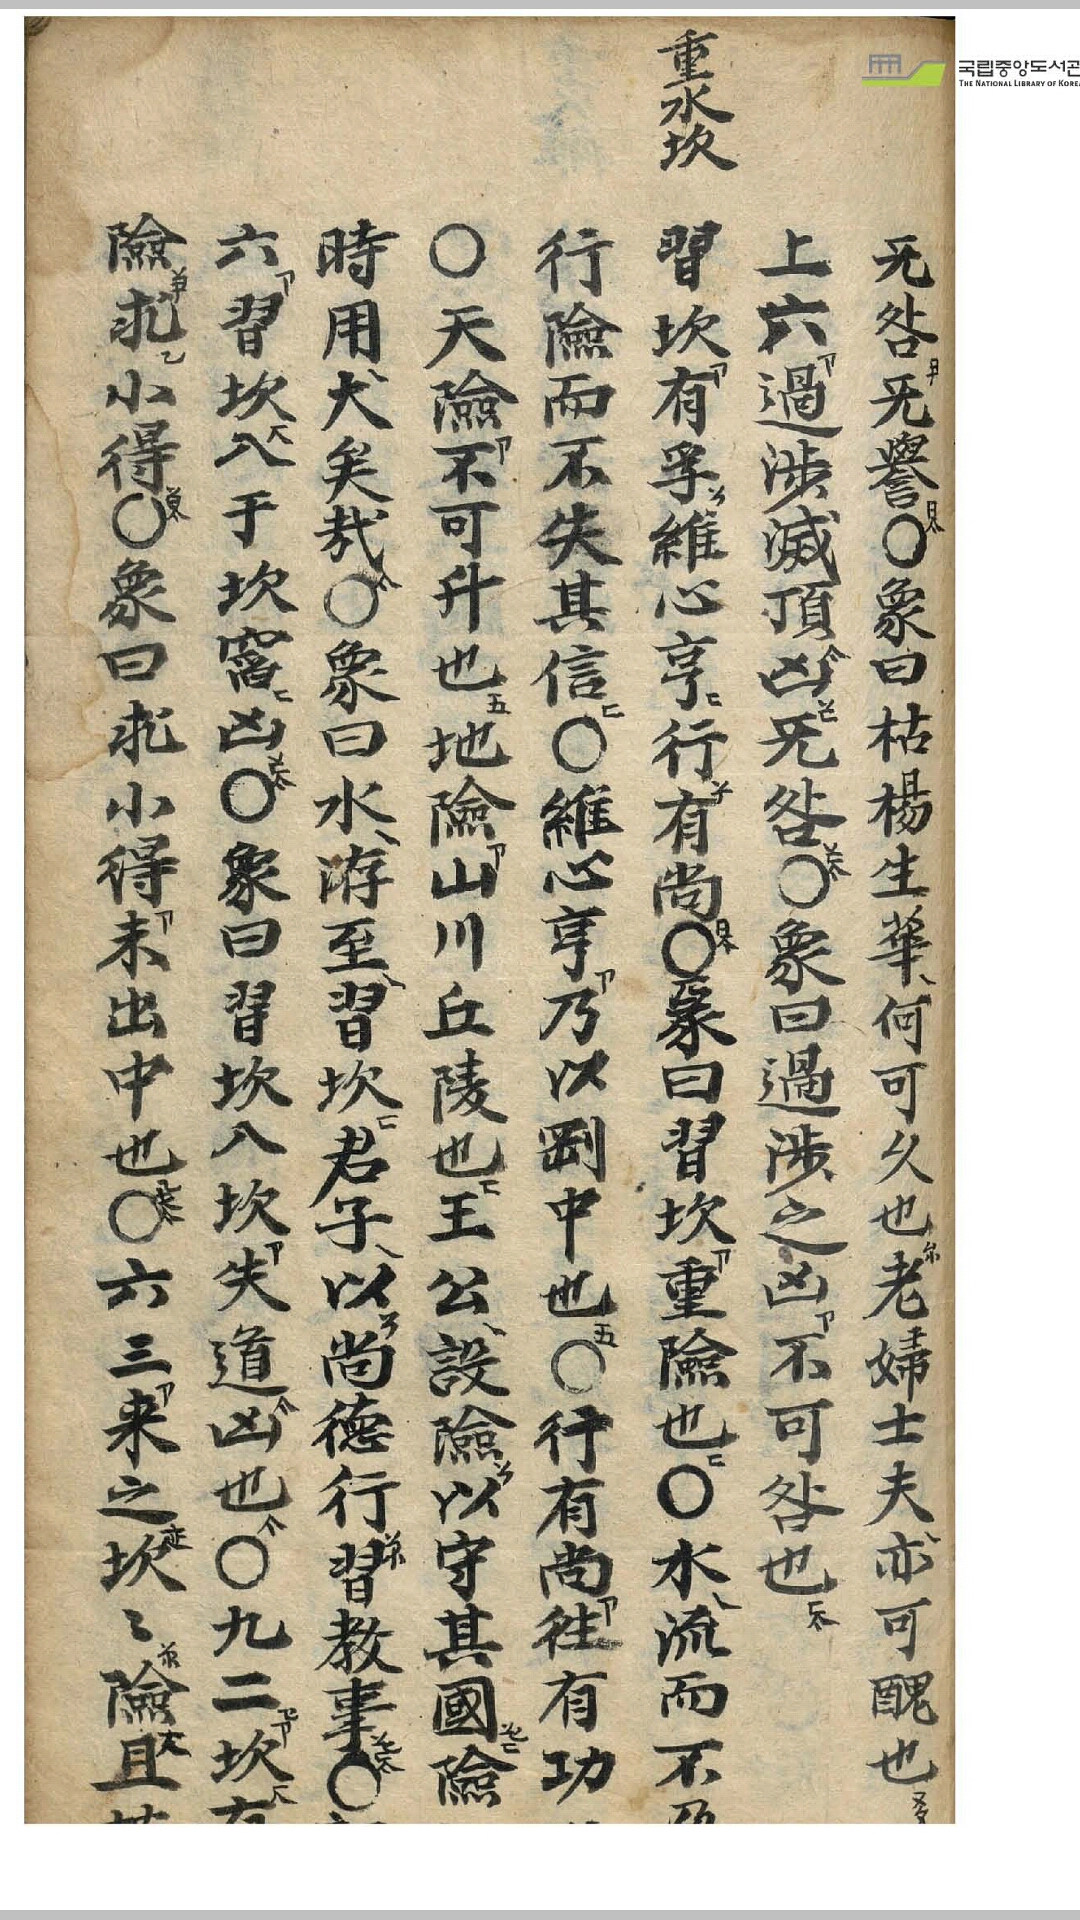 重水坎
国립중앙도서관
THE NATIONAL LIBRARY OF KOREA
无咎无譽〇象曰枯楊生華何可久也老婦士夫亦可醜也
上六過涉滅頂凶无咎〇象曰過涉之凶不可咎也
習坎有孚維心亨行有尚〇彖曰習坎重險也〇水流而不
行險而不失其信〇維心亨乃以剛中也〇行有尚往有功
〇天險不可升也地險山川丘陵也王公設險以守其國險
時用大矣哉〇象曰水洊至習坎君子以尚德行習教事〇
六習坎入于坎窞凶〇象曰習坎入坎失道凶也〇九二坎有
險求小得〇象曰求小得未出中也〇六三来之坎〻險且